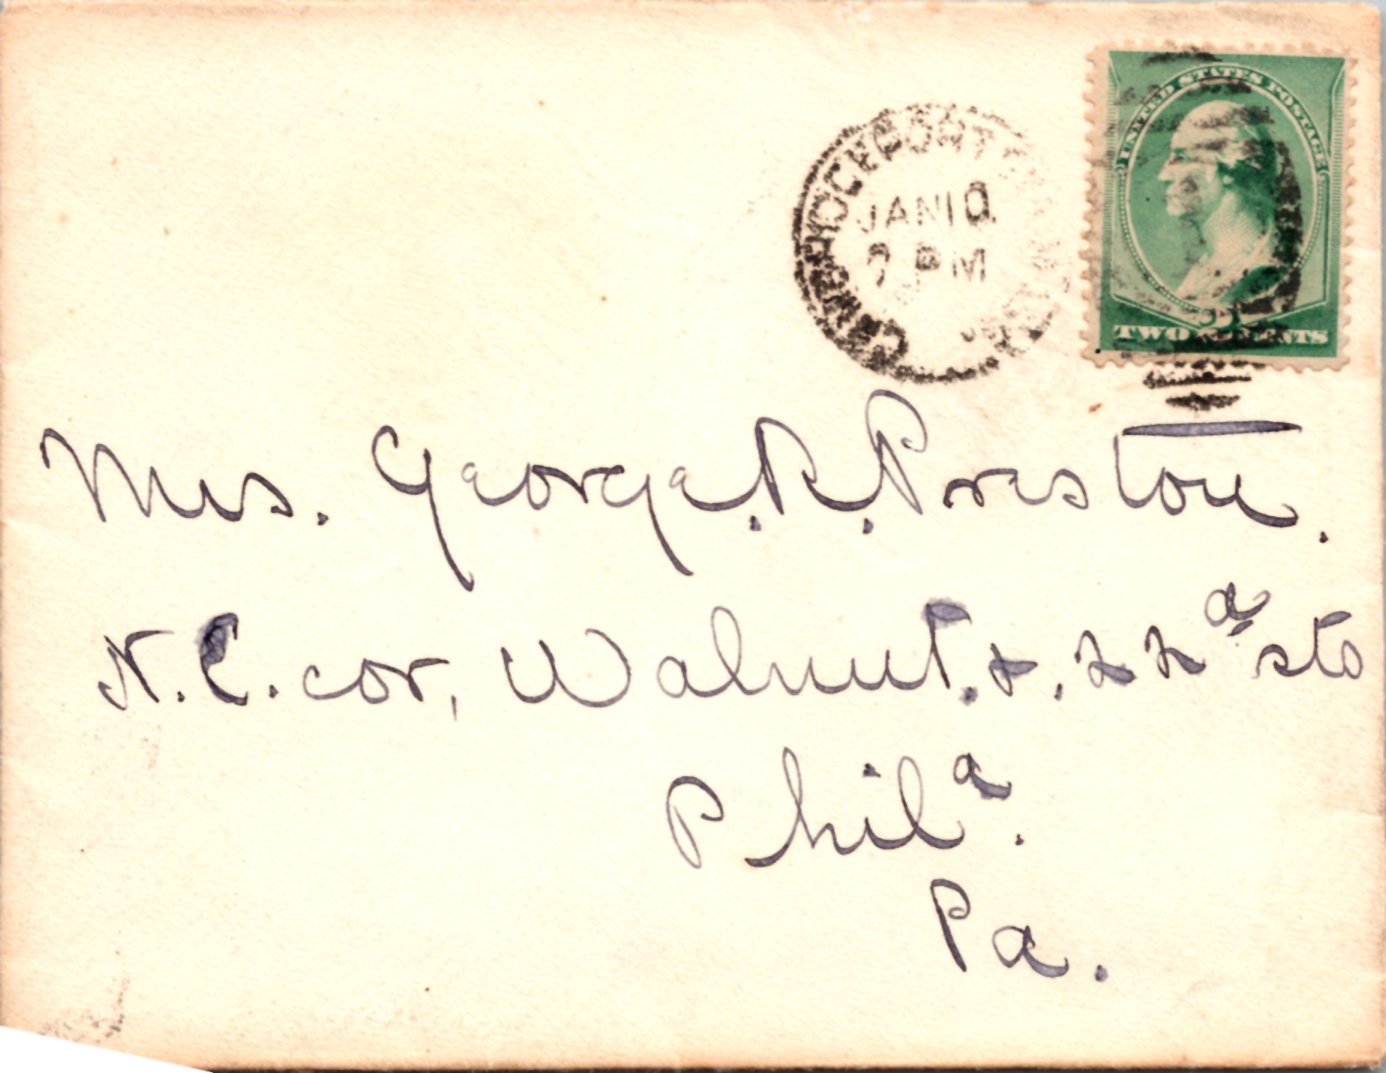 CAMBRIDGEPORT STA.
JAN 10
PM
UNITED STATES POSTAGE
2
TWO CENTS
Mrs. George. R. Preston.
N.E. cor, Walnut. & . 22ᵈ sts
Philᵃ.
Pa.